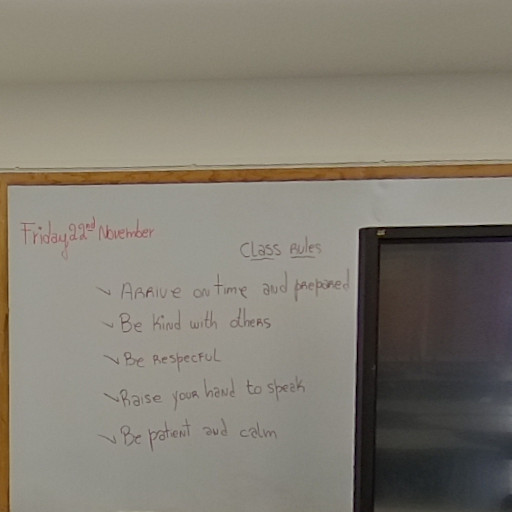 Friday 22nd November
Class Rules
Arrive on time and prepared
Be kind with others
Be Respecful
Raise your hand to speak
Be patient and calm